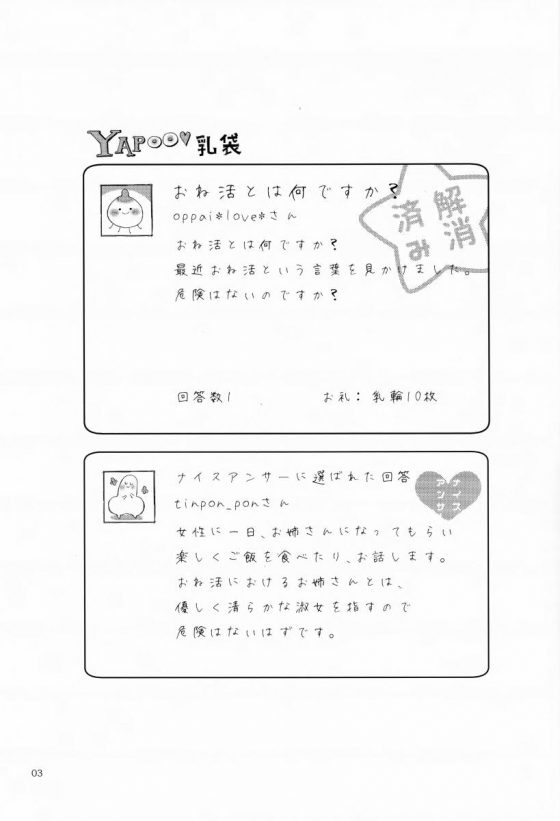 YAPOO♥乳袋
おね活とは何ですか？
oppai*love*さん
解消済み
おね活とは何ですか？
最近おね活という言葉を見かけました。
危険はないのですか？
回答数1 お礼：乳輪10枚
ナイスアンサーに選ばれた回答
ナイスアンサ
tinpon_ponさん
女性に一日、お姉さんになってもらい
楽しくご飯を食べたり、お話します。
おね活におけるお姉さんとは、
優しく清らかな淑女を指すので
危険はないはずです。
03